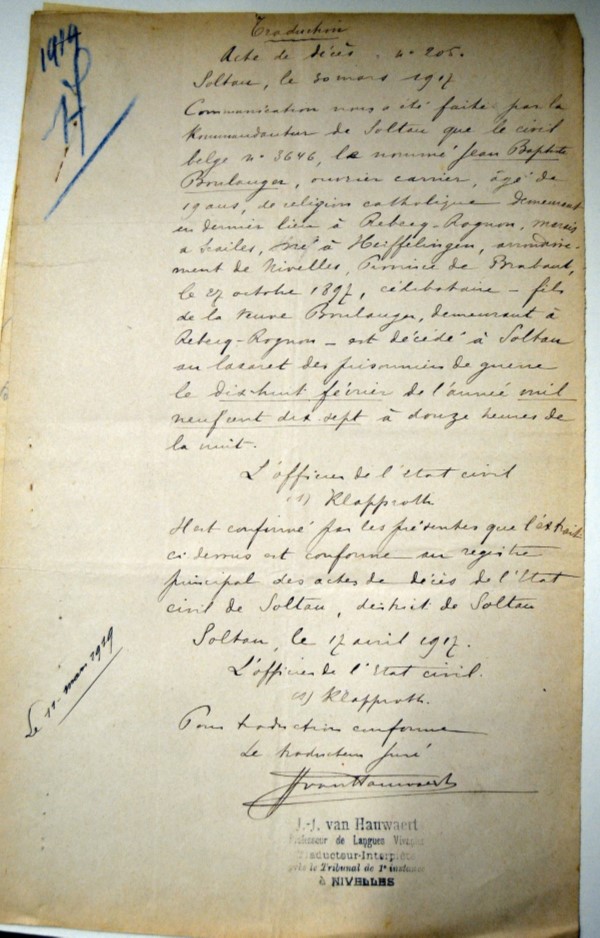 Traduction
1919
Acte de décès. N° 205.
Soltau, le 30 mars 1917
Communication nous a été faite par la
Kommandantur de Soltau que le civil
belge n° 3646, le nommé Jean Baptiste
Boulanger, ouvrier carrier, âgé de
19 ans, de religion catholique demeurant
en dernier lieu à Rebecq-Rognon,
à né à arrondisse-
ment de Nivelles, Province de Brabant,
le 27 octobre 1897, célibataire – fils
de la veuve Boulanger, demeurant à
Rebecq-Rognon – est décédé à Soltau
au lazaret des prisonniers de guerre
le dix-huit février de l'année mil
neufcent dix sept à douze heures de
la nuit.
L'officier de l'état civil
(s) Klapproth
Il est confirmé par les présentes que l'extrait
ci dessus est conforme au registre
principal des actes de décès de l'Etat
civil de Soltau, district de Soltau
Soltau, le 17 avril 1917.
L'officier de l'Etat civil.
(s) Klapproth.
Le 11 mars 1919
Pour traduction conforme
Le traducteur juré
JJvanHauwaert
J.-J. van Hauwaert
Professeur de Langues
Traducteur-Interprète
près le Tribunal de 1e instance
à NIVELLES